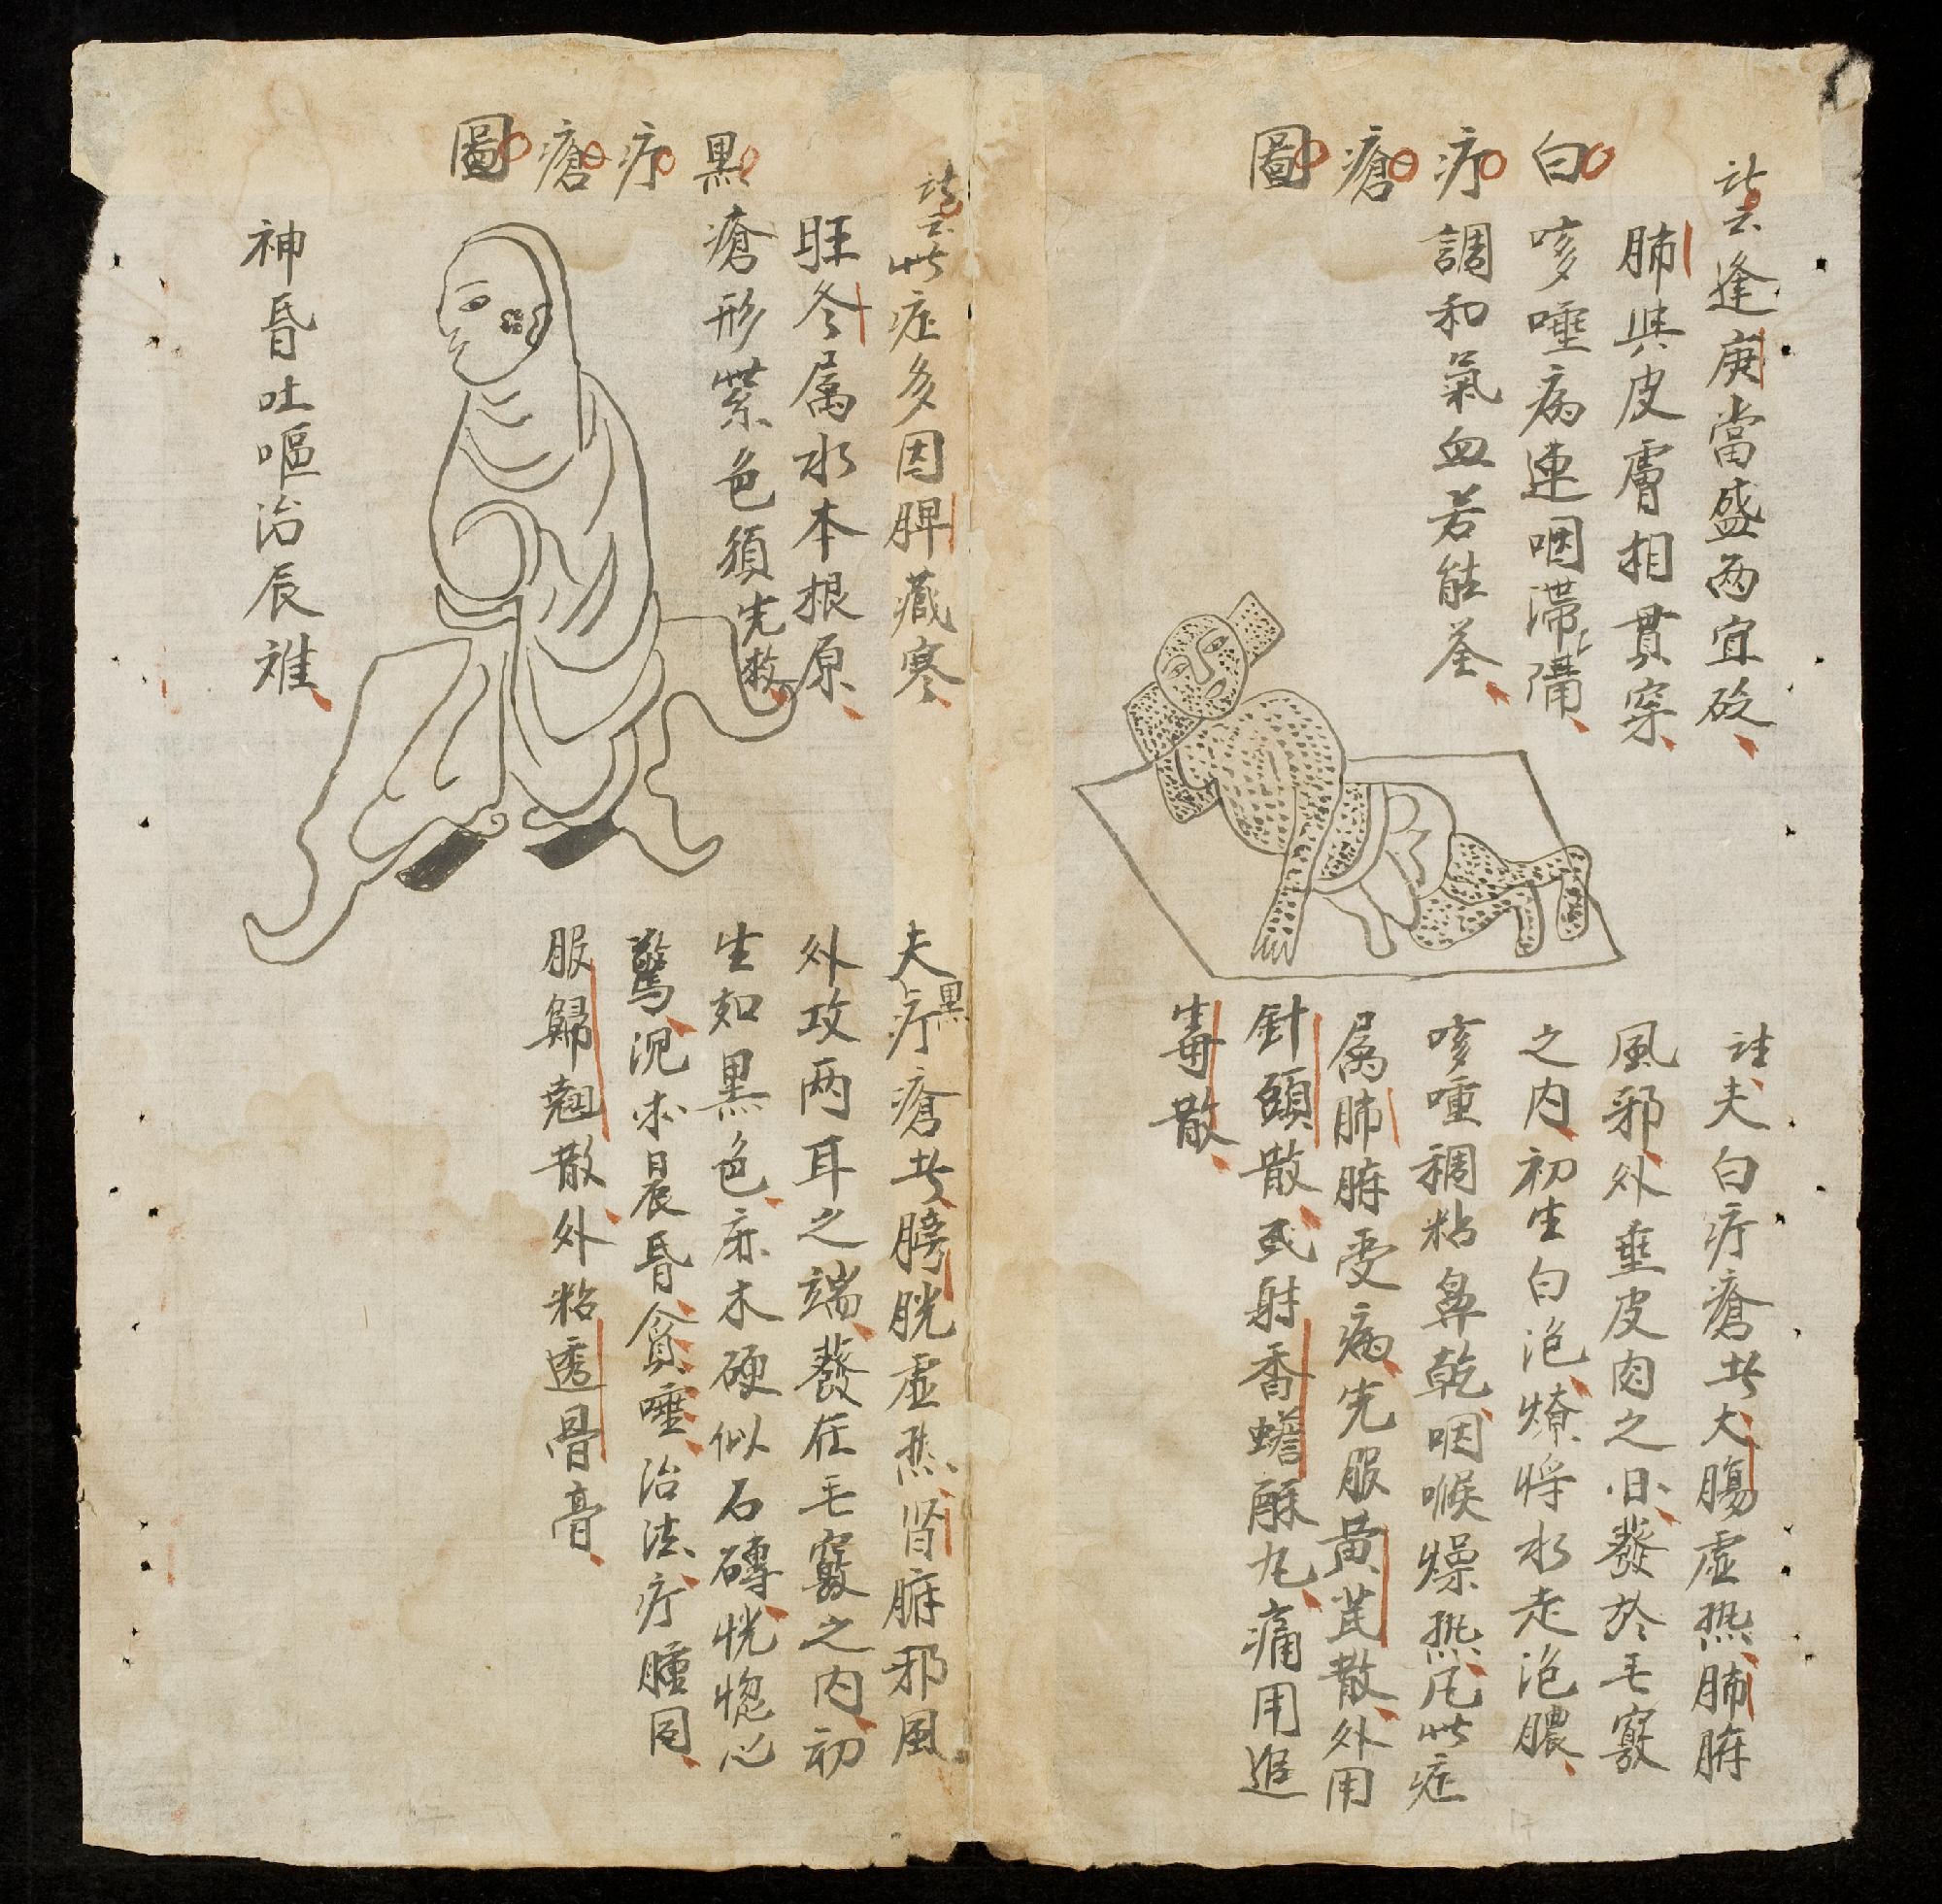 白疔瘡圖
詩云逢庚當盛两宜砭
肺與皮膚相貫穿
咳唾病連咽滯膈
調和氣血若能荃
註夫白疔瘡者大腸虛热肺腑
風邪外垂皮肉之日發於毛竅
之内初生白泡燎將水走泡膿
咳唾稠粘鼻乾咽喉燥热凡此症
属肺腑受病先服黄芪散外用
針頭散或射香蟾酥丸痛用追
毒散
黑疔瘡圖
詩云此症多因脾藏寒
旺冬属水本根原
瘡形紫色須先救
神昏吐嘔治辰难
夫黑疔瘡者膀胱虛热肾腑邪風
外攻两耳之端發在毛竅之内初
生如黑色麻木硬似石磚恍惚心
驚況求晨昏貪唾治法疔腫同
服歸翹散外粘透骨膏